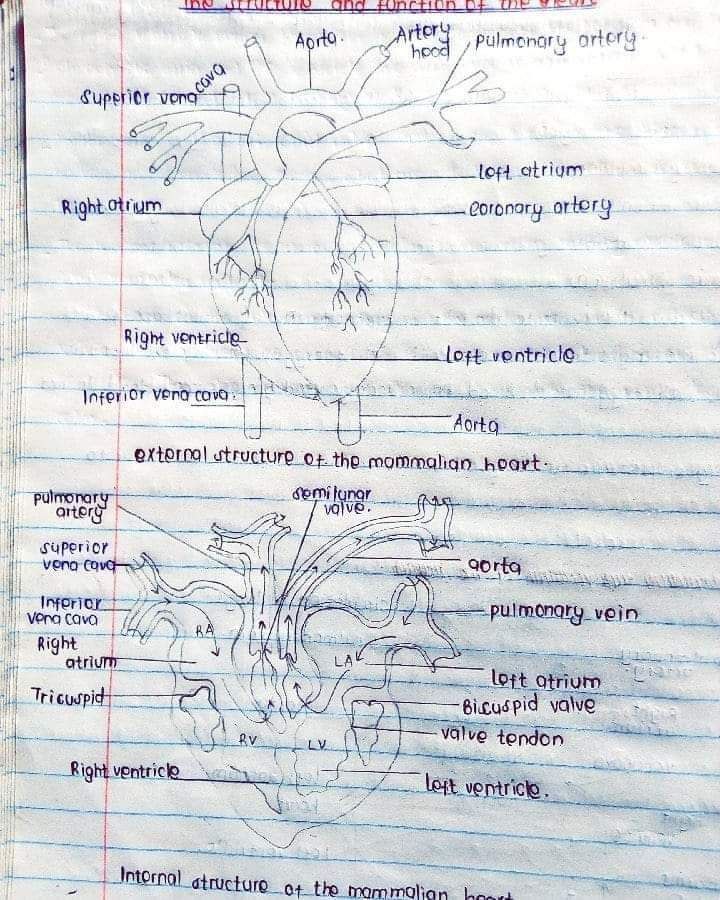 The structure and function of the Heart
Aorta.
Artery
hood
pulmonary artery.
superior vena cava
left atrium
Right atrium
coronary artery
Right ventricle
Left ventricle
Inferior vena cava.
Aorta
external structure of the mammalian heart.
pulmonary
artery
semilunar
valve.
superior
vena cava
aorta
Inferior
vena cava
pulmonary vein
RA
Right
atrium
LA
left atrium
Tricuspid
Bicuspid valve
valve tendon
RV
LV
Right ventricle
left ventricle.
Internal structure of the mammalian heart